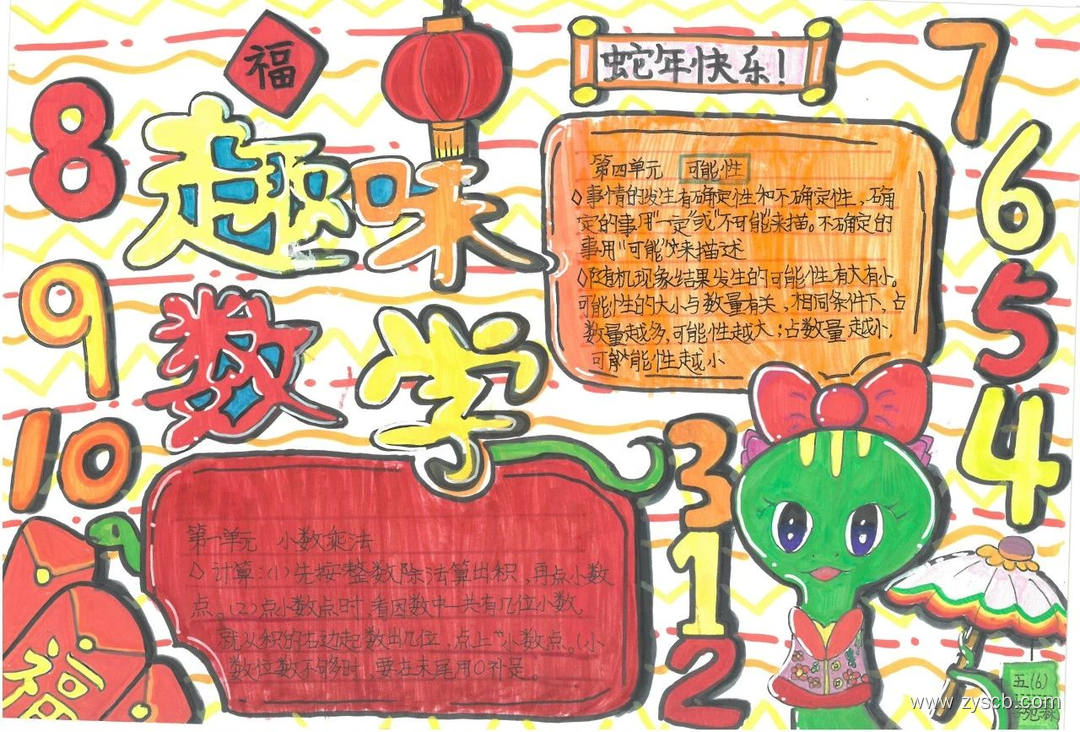 福
蛇年快乐!
趣味
数学
8
9
10
7
6
5
4
3
1
2
第四单元 可能性
◇事情的发生有确定性和不确定性,确
定的事用"一定"或"不可能"来描。不确定的
事用"可能"来描述
◇随机现象结果发生的可能性有大有小。
可能性的大小与数量有关,相同条件下,占
数量越多,可能性越大;占数量越小,
可能性越小
第一单元 小数乘法
◇计算:(1)先按整数除法算出积,再点小数
点。(2)点小数点时看因数中一共有几位小数。
就从积的右边起数出几位,点上小数点。(小
数位数不够时,要在末尾用0补足
福
五(6)
www.zyscb.com